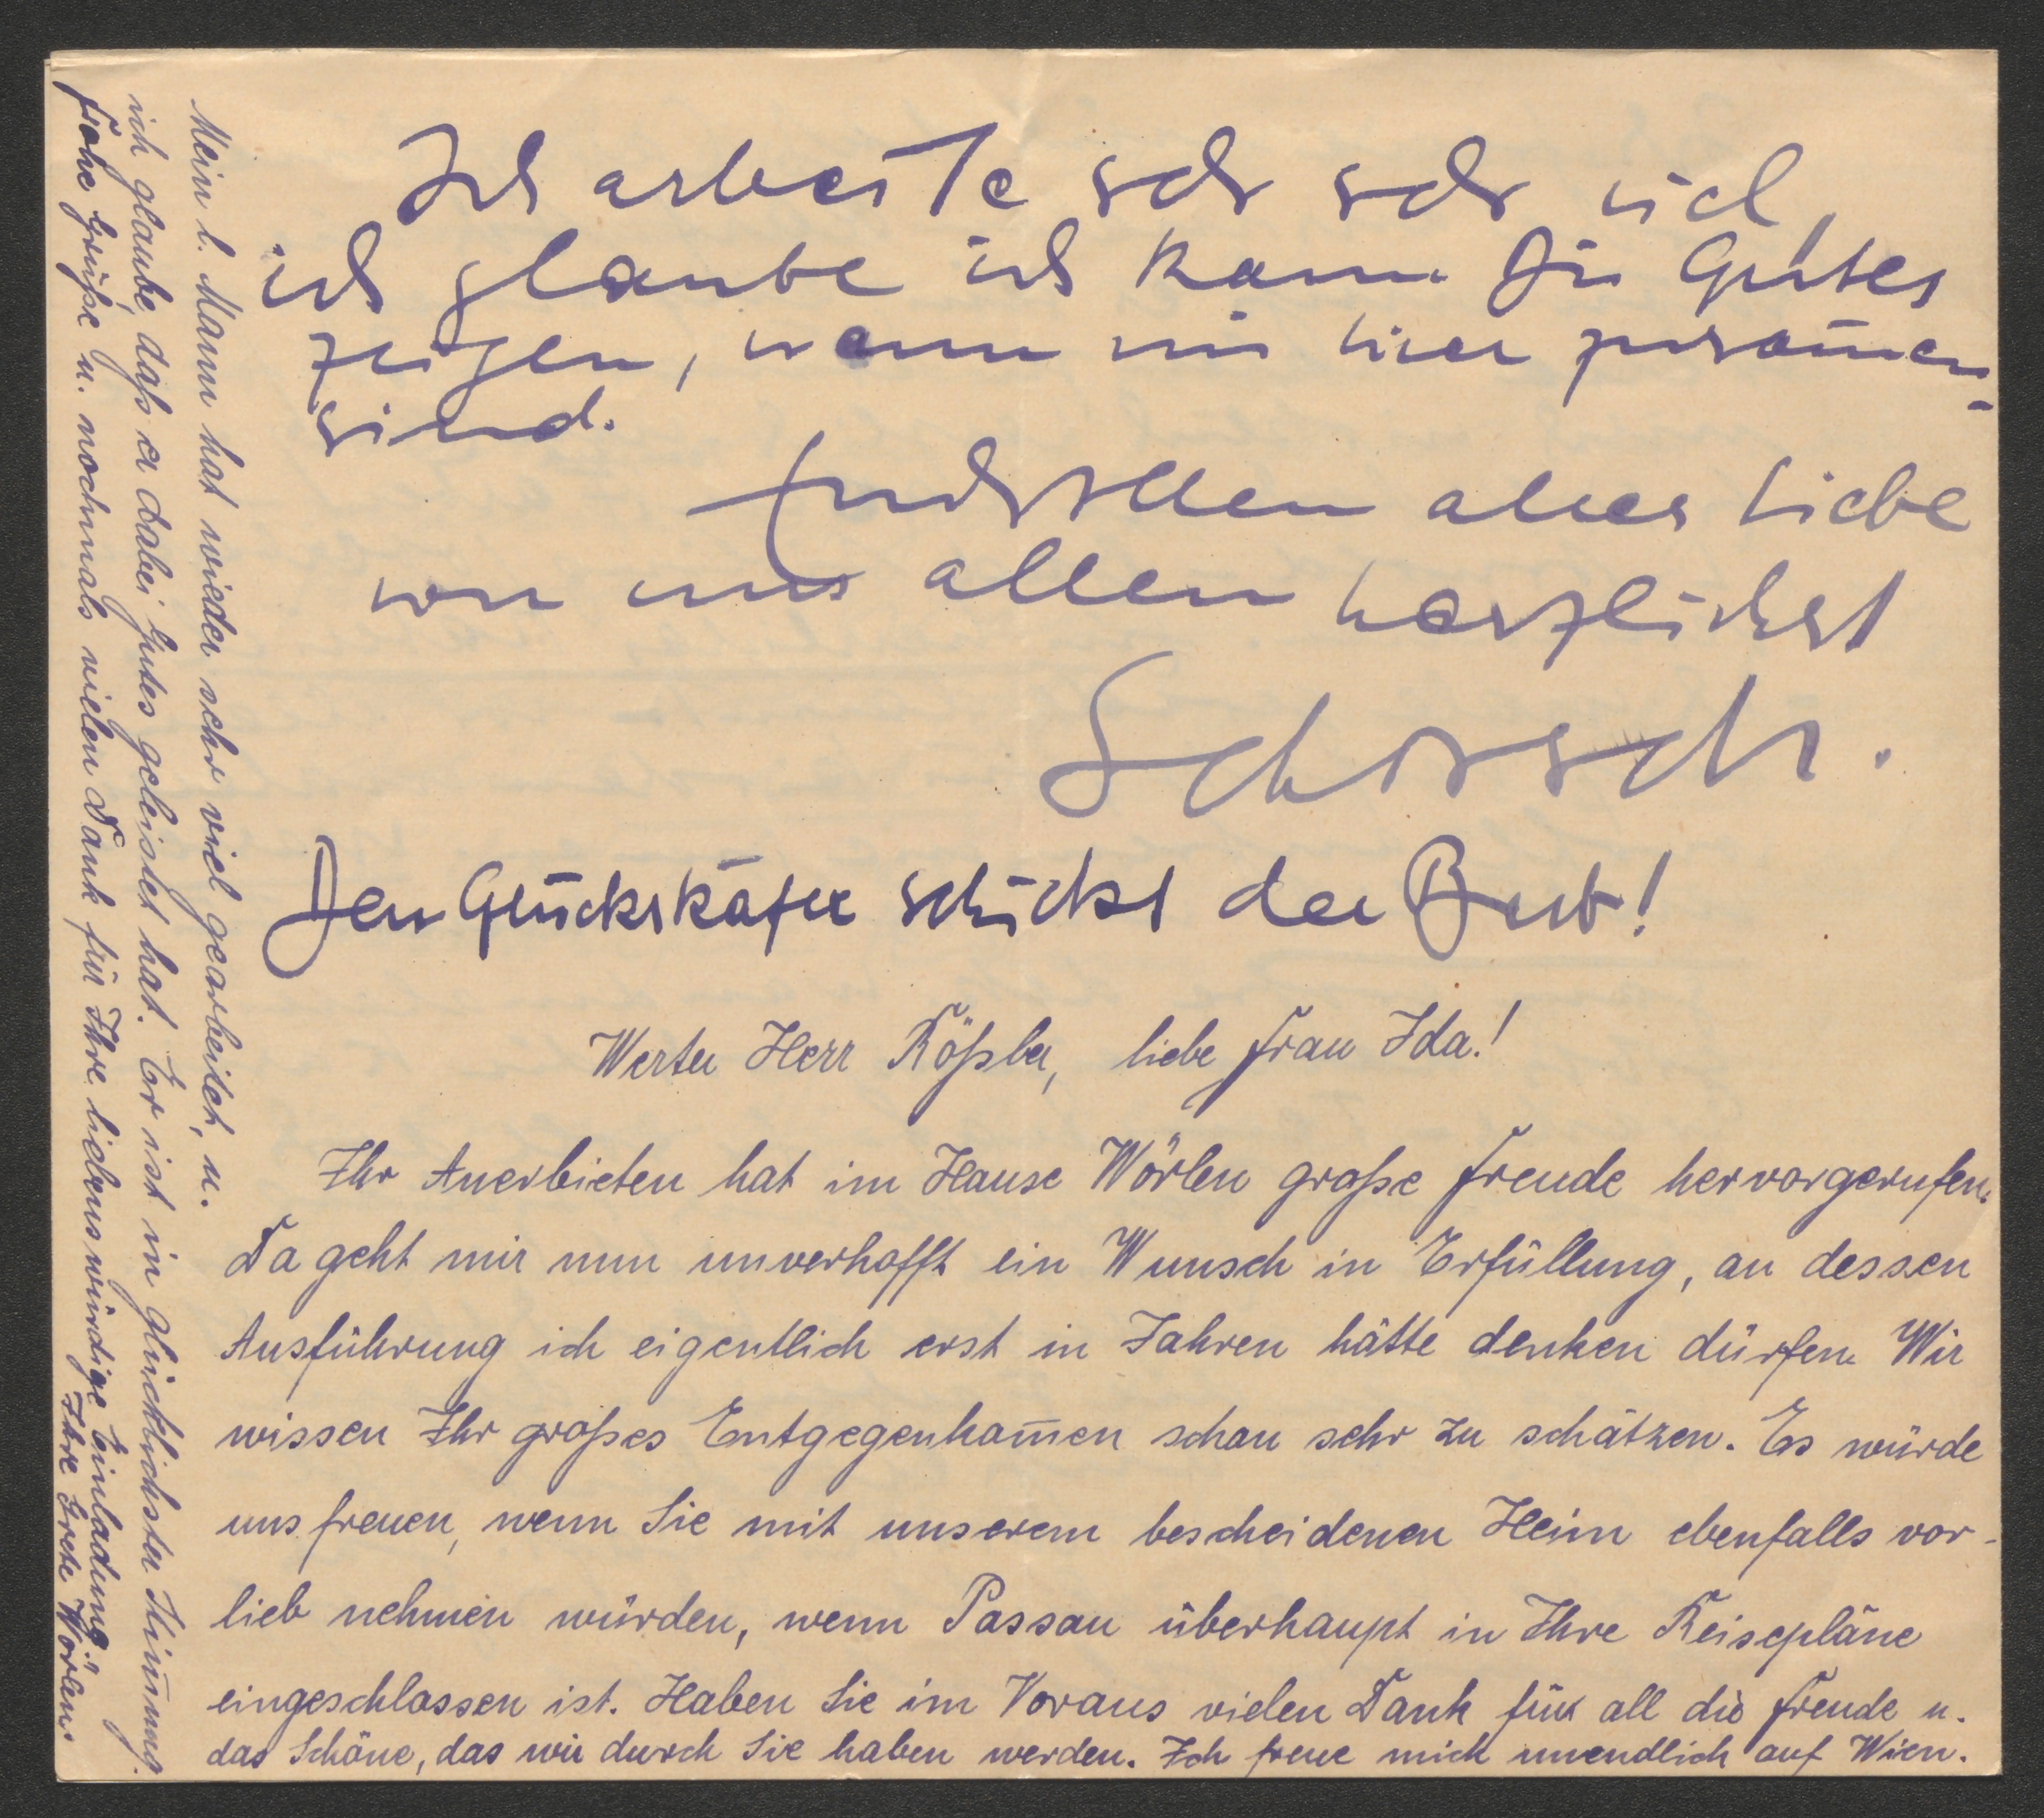 Ich arbeite sehr sehr viel,
ich glaube ich kann Dir Gutes
zeigen, wenn wir hier zusam̅en-
sind.
Euch allen alles Liebe
von uns allen herzlichst
Schorsch.
Den Glückskäfer schickt der Bub!
Werter Herr Rößler, liebe Frau Ida!
Ihr Anerbieten hat im Hause Wörlen große Freude hervorgerufen.
Da geht mir nun unverhofft ein Wunsch in Erfüllung, an dessen
Ausführung ich eigentlich erst in Jahren hätte denken dürfen. Wir
wissen Ihr großes Entgegenkom̅en schon sehr zu schätzen. Es würde
uns freuen, wenn Sie mit unserem bescheidenen Heim ebenfalls vor-
lieb nehmen würden, wenn Passau überhaupt in Ihre Reisepläne
eingeschlossen ist. Haben Sie im Voraus vielen Dank für all die Freude u.
das Schöne, das wir durch Sie haben werden. Ich freue mich unendlich auf Wien.
Mein l. Mann hat wieder sehr viel gearbeitet, u.
ich glaube, daß er dabei Gutes geleistet hat. Er ist in glücklichster Stim̅ung.
Frohe Grüße u. nochmals vielen Dank für Ihre liebenswürdige Einladung
Ihre Grete Wörlen.